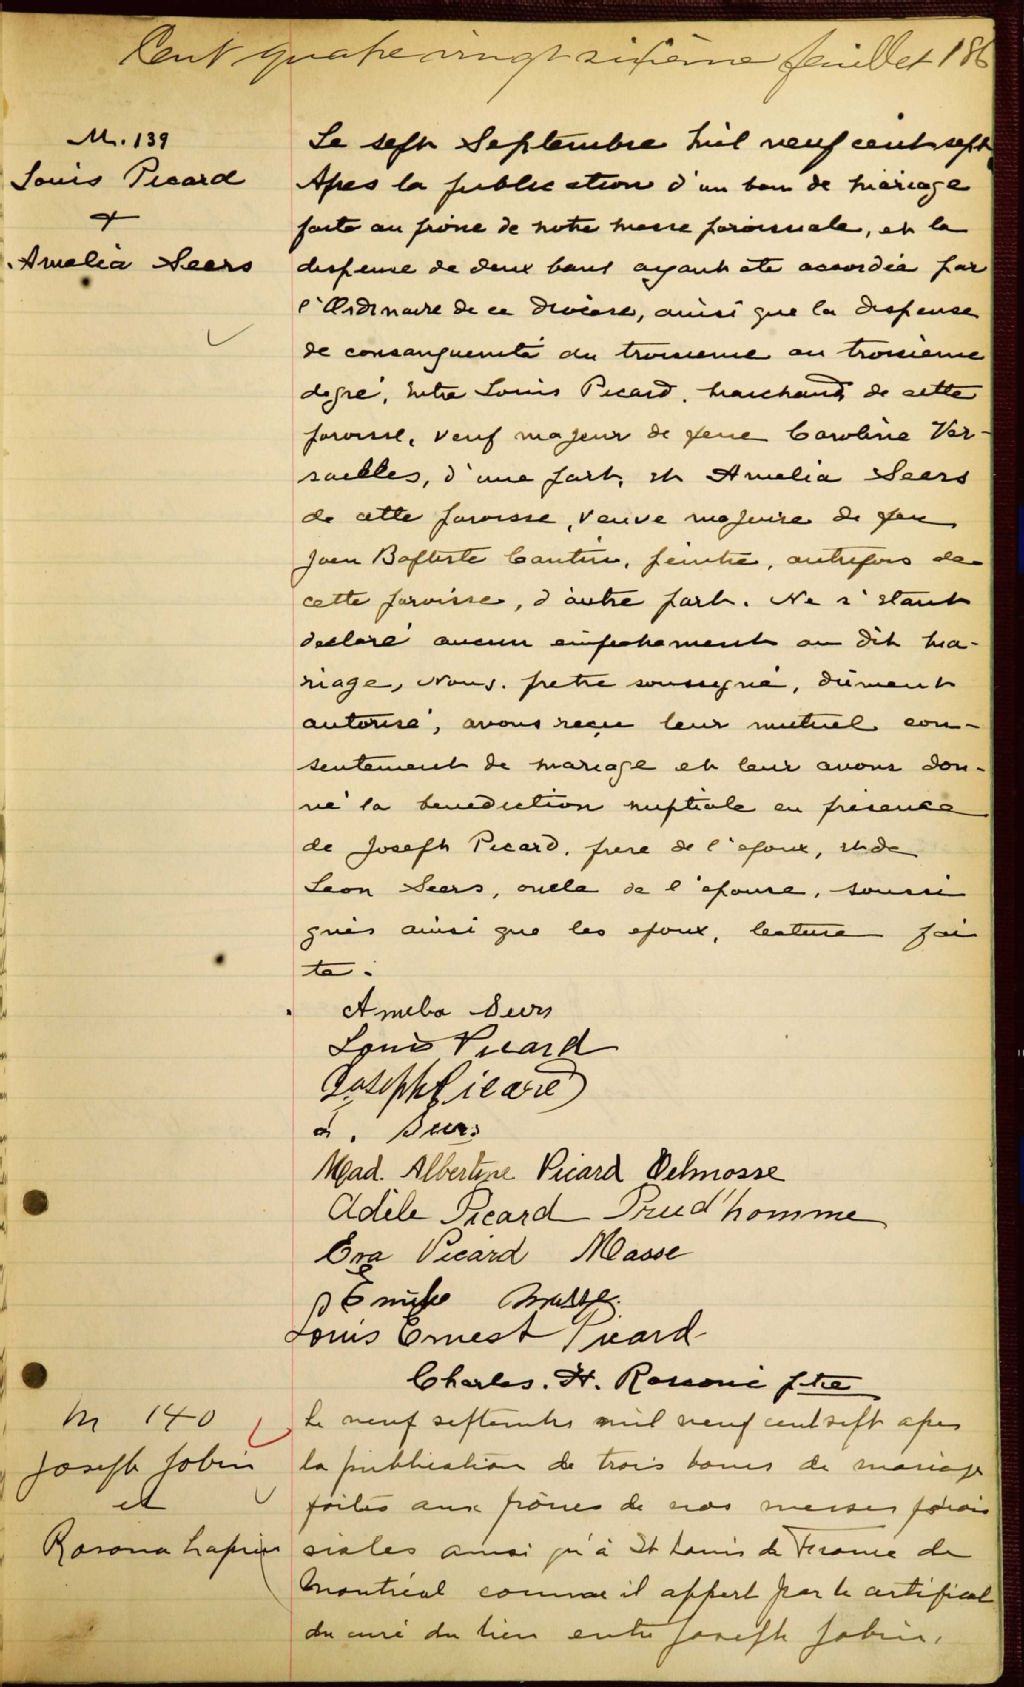 Cent quatre vingt sixième feuillet 186
M. 139
Louis Picard
&
Amelia Seers
Le sept Septembre mil neuf cent sept,
Apes la publication d'un ban de mariage
faite au prone de notre messe paroissiale, et la
dispense de deux bans ayant ete accordée par
l'Ordinaire de ce diocese, ainsi que la dispense
de consanguenité du troisieme au troisième
degré, entre Louis Picard, marchand de cette
paroisse, veuf majeur de feue Caroline Ver-
sailles, d'une part, et Amelia Seers
de cette paroisse, veuve majeure de feu
Jean Baptiste Cantin, peintre, autrefois de
cette paroisse, d'autre part. Ne s'étant
declaré aucun empechement au dit ma-
riage, Nous, pretre soussigné, dûment
autorisé, avons reçu leur mutuel con-
sentement de mariage et leur avons don-
né la benediction nuptiale en présence
de Joseph Picard, frere de l'epoux, et de
Leon Seers, oncle de l'épouse, soussi
gnés ainsi que les epoux, lecture fai
te.
Amelia Seers
Louis Picard
Joseph Picard
Seers
Mad. Albertine Picard Delmosse
Adèle Picard Prud'homme
Eva Picard Masse
Emile Masse
Louis Ernest Picard
Charles. H. ptre
M 140
Joseph Jobin
et
Rosanna Lapier
Le neuf septembre mil neuf cent sept apes
la publication de trois bans de mariage
faites aux prônes de nos messes parois
siales ainsi qu'à St Louis de France de
Montréal comme il appert par le certificat
du curé du lieu entre Joseph Jobin,